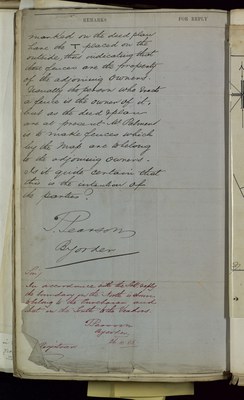 REMARKS FOR REPLY
marked on the deed plan
have the T placed on the
outside, thus indicating that
the fences are the property
of the adjoining owners.
Usually the person who erects
a fence is the owner of it,
but as the deed & plan
are at present Mr
is to make fences which
by the map are belong
to the adjoining owners.
Is it quite certain that
this is the intention of
the parties?
T. Pearson
By order
in accordance with the
the boundary on the North
belong to the Purchaser and
that on the South to the Vendors.
T Pearson
By order